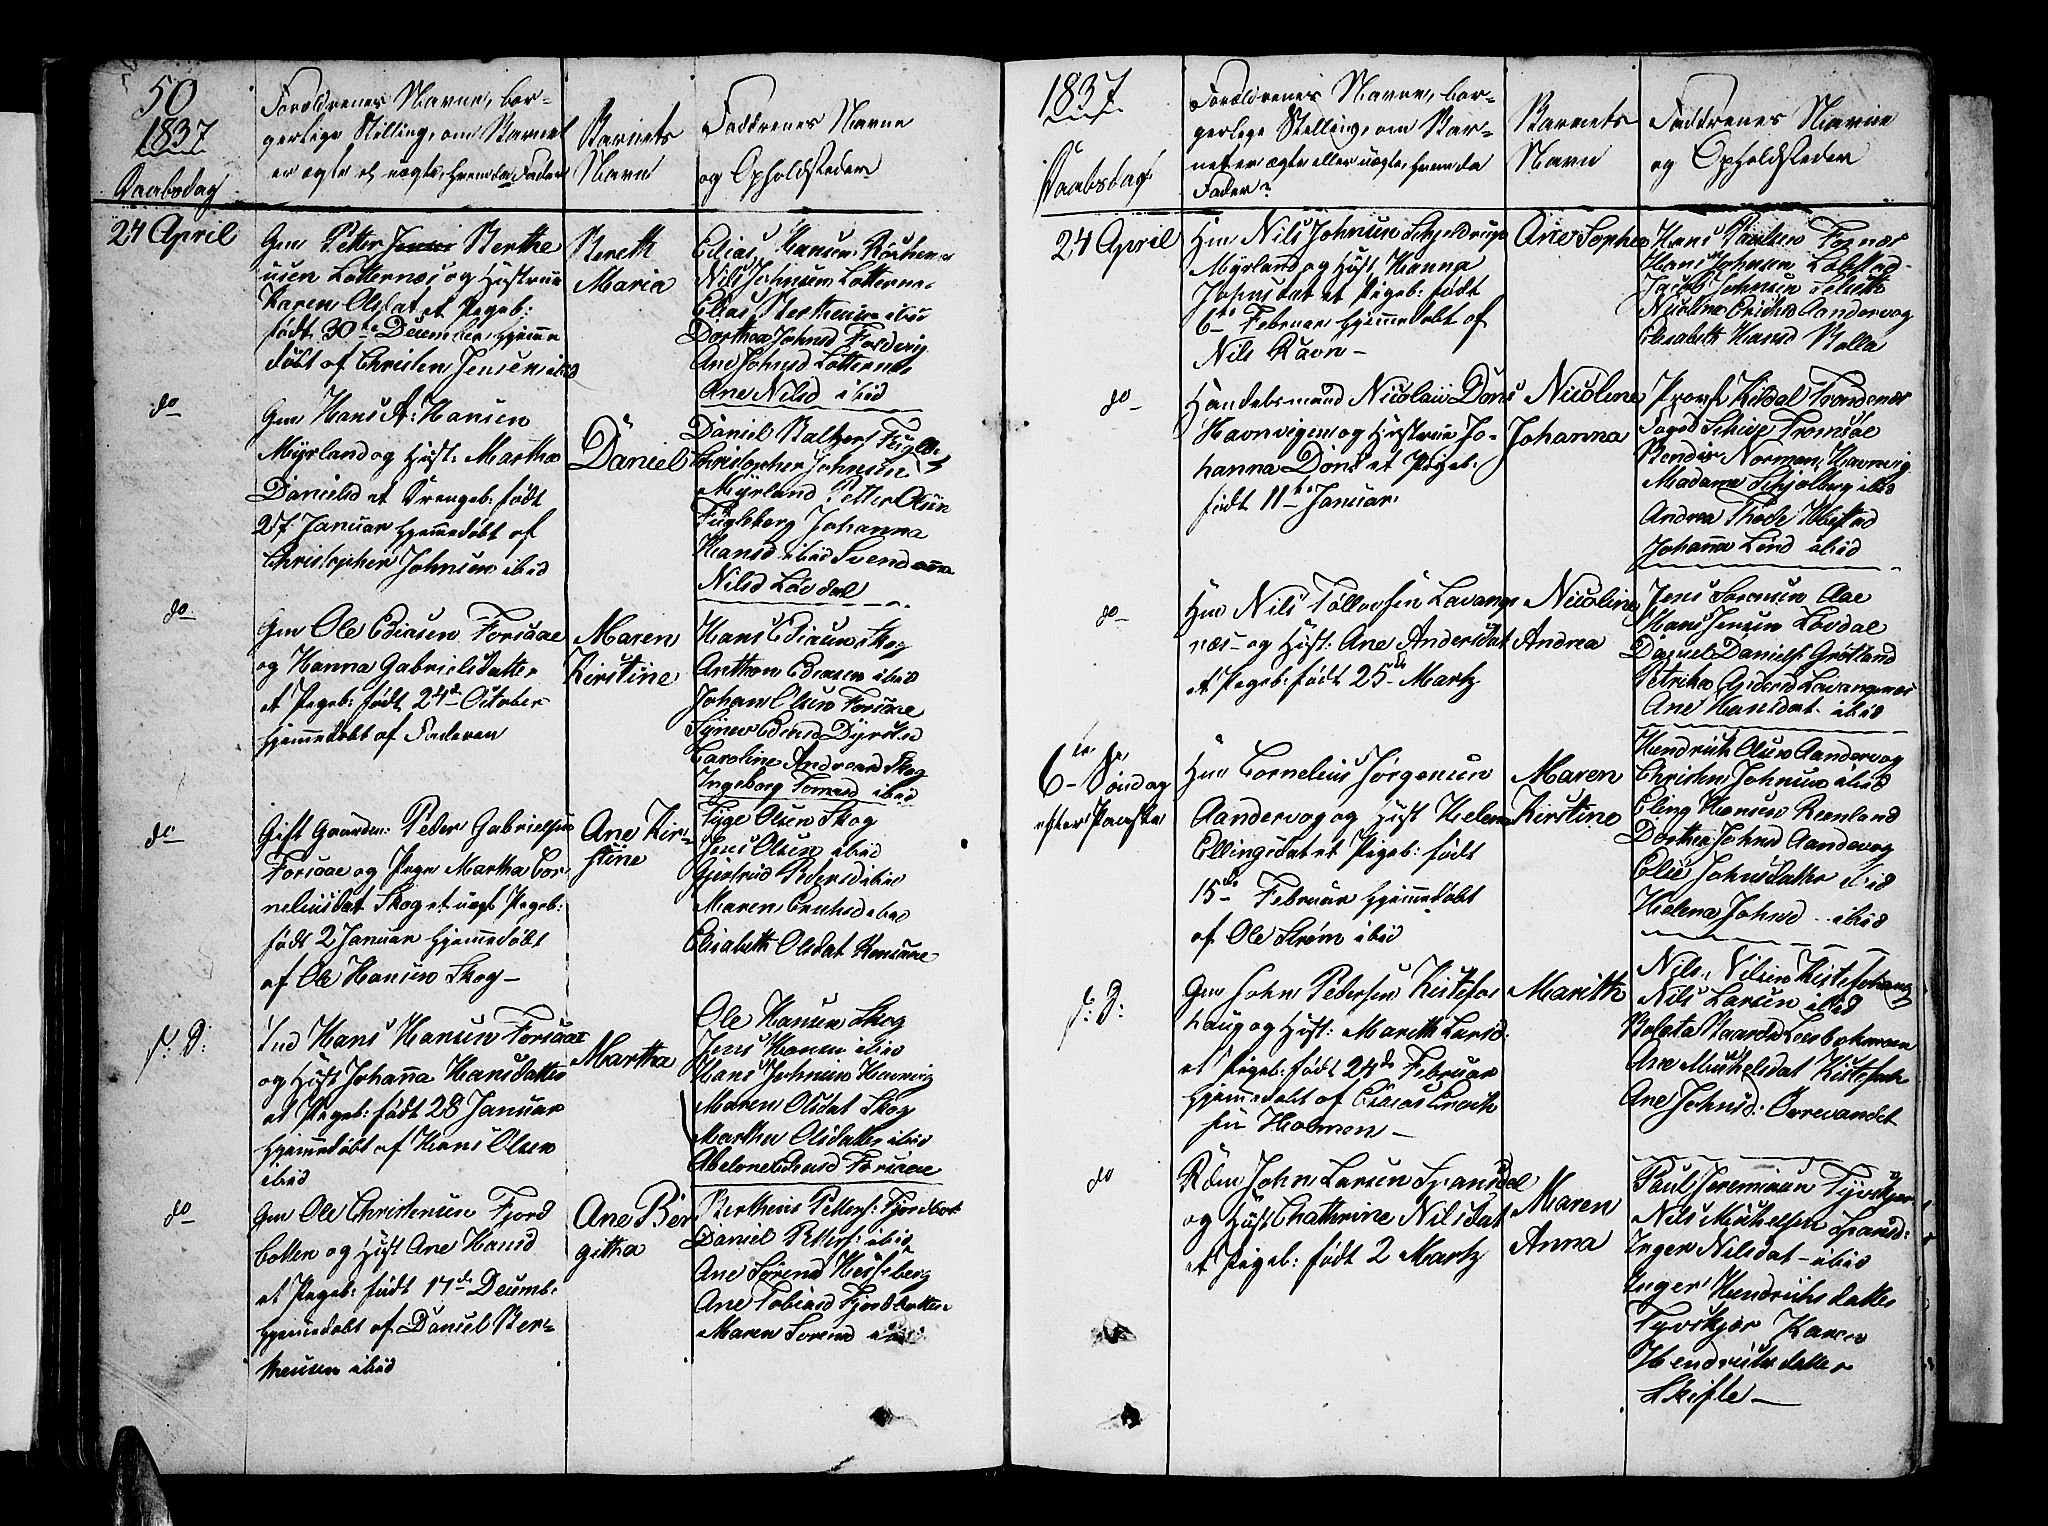 50
1837
Daabsdag
Forældrenes Navne, bor-
gerlige Stilling, om Barnet
er ægte el uægte, hvem da Fader
Barnets
Navn
Faddrenes Navne
og Opholdsteder
24 April
Gm Petter Berthe
usen Lotternæs og Hustrue
Karen Olsdat et Pigeb:
født 30te December hjemme
døbt of Christen Jensen ibid
Bereth
Maria
Elias Hansen
Nils Johnsen Lotterne
Elias Bertheusen ibid
Dorthea Johnsd Foldvig
Ane Johnsd Lotternæs
Ane Nilsd ibid
do
Gm Hans A: Hansen
Myrland og Hust: Martha
Danielsd et Drengeb: født
27 Januar hjemmedøbt of
Christopher Johnsen ibid
Daniel
Daniel Baltzers Fugleb
Christopher Johnsen
Myrland Petter Olsen
Fugleberg Johanna
Hansd ibid Svendanna
Nilsd Løvdal
do
Gm Ole Ediasen Forsaae
og Hanna Gabrielsdatter
et Pigeb: født 24de October
hjemmedøbt of Faderen
Maren
Kirstine
Hans Ediasen Skog
Anthon Ediasen ibid
Johan Olsen Forsaae
Synev Ediasd Dyrstad
Caroline Andreasd Skog
Ingeborg Tomasd ibid
do
Gift Gaardm: Peder Gabrielsen
Forsaae og Pige Martha Cor
neliusdat Skog et uægt Pigeb:
født 2 Januar hjemmedøbt
af Ole Hansen Skog-
Ane Kir-
stine
Tyge Olsen Skog
Jens Olsen ibid
Gjertrud Pedersd ibid
Maren Erichsd ibid
Elisabeth Olsdat
s: D:
Ind Hans Hansen Forsaae
og Hust Johanna Hansdatter
et Pigeb: født 28 Januar
hjemmedøbt af Hans Olsen
ibid
Martha
Ole Hansen Skog
Jens Hansen ibid
Hans Johnsen Havnvig
Maren Olsdat Skog
Marthea Olsdatter ibid
Abelone Ediasd Forsaae
do
Gm Ole Christensen Fjord
botten og Hust Ane Hansd
et Pigeb: født 17de Decemb:
hjemmedøbt af Daniel Ber-
theusen ibid
Ane Ber
githa
Bertheus Petters: Fjordbott
Daniel Petters: ibid
Ane Sørensd Hesseberg
Ane Tobiasd Fjordbotten
Maren Sørensd ibid
1837
Daabsdag
Forældrenes Navne, bor-
gerlige Stilling, om Bar-
net er ægte eller uægte, hvem da
Fader?
Barnets
Navn
Faddrenes Navne
og Opholdsteder
24 April
Hm Nils Johnsen Schjeldrup
Myrland og Hust Hanna
Johnsdat et Pigeb: født
6te Februar hjemmedøbt af
Nils Ravn-
Ane Sophie
Hans Paulsen Fornæs
Hans Johnsen
Jacob Johnsen
Nicoline Erichsd Aandervog
Elisabeth Hansd Rolla
do
Handelsmand Nicolaii Dons
Havnvigen og Hustrue Jo-
hanna Dons et Pigeb:
født 11te Januar
Nicoline
Johanna
Provst Kildal Trondenæs
Foged Schive Tromsøe
Bendix Norman, Havnvig
Madame Schjølberg ibid
Andrea Thode Ibestad
Johanna Lind ibid
do
Hm Nils Tollevsen Lavang
næs og Hust: Ane Andersdat
et Pigeb: født 25de Martz
Nicoline
Andrea
Jens Sørensen Aae
Hans Jensen Løvdal
Daniel Daniels Grøtland
Petrikka Andersd Lavangnæs
Ane Hansdat ibid
6te Søndag
efter Paaske
Hm Cornelius Jørgensen
Aandervog og Hust Helena
Ellingsdat et Pigeb: født
15de Februar hjemmedøbt
af Ole Strøm ibid
Maren
Kirstine
Hendrich Olsen Aandervog
Christen Johnsen ibid
Eling Hansen Reenland
Dorthea Johnsd Aandervog
Elie Johnsdatter ibid
Helena Johnsd ibid
s: D:
Gm John Pedersen Kistefos
haug og Hust: Mareth Larsd:
et Pigeb: født 24de Februar
hjemmedøbt af Elias Enoch
sen Holmen-
Mareth
Nils Nilsen Kistefoshaug
Nils Larsen ibid
Ane Michelsdat Kistefosh
Ane Johnsd: Øvrevandet
do
Rdm John Larsen Spansdal
og Hust Chathrine Nilsdat
et Pigeb: født 2 Martz
Maren
Anna
Paul Jeremiasen Tyvskjær
Nils Michelsen Spansd:
Inger Nilsdat ibid
Inger Hendrichsdatter
Tyvskjær Karen
Hendrichsdatter
Skifte-